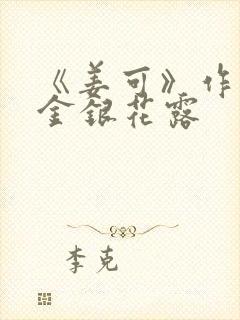 《姜可》作
金银花露
李克